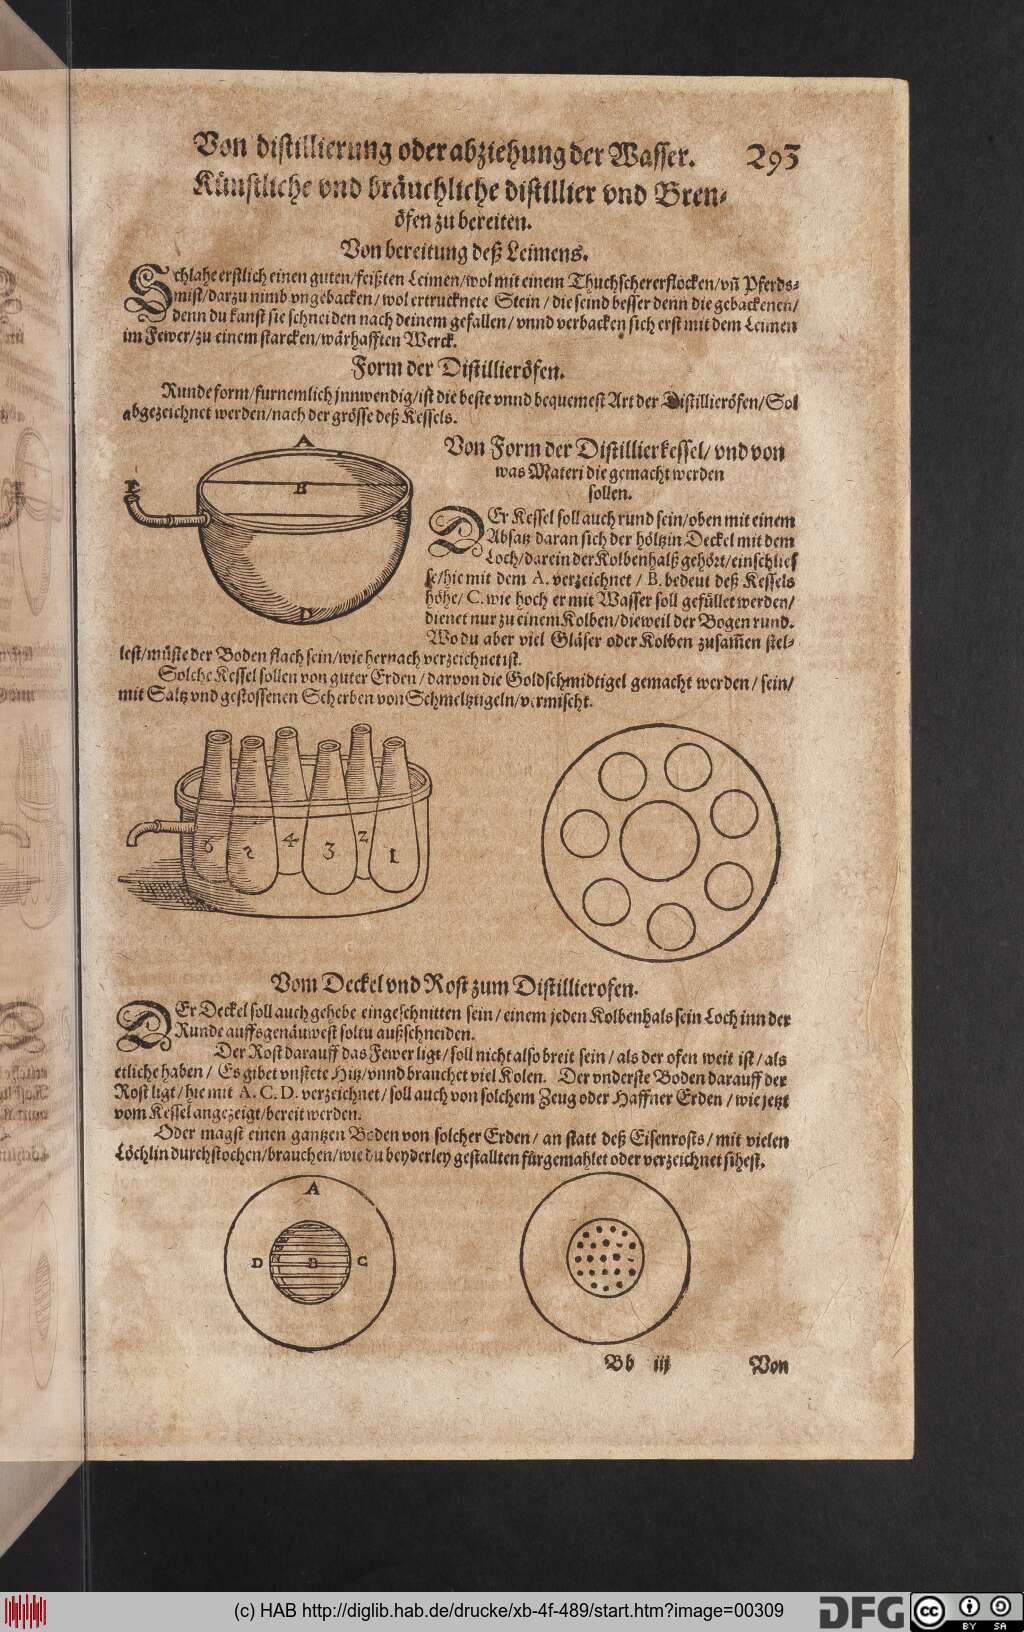 Von distillierung oder abziehung der Wasser. 293
Künstliche vnd bräuchliche distillier vnd Bren⸗
öfen zu bereiten.
Von bereitung deß Leimens.
Schlahe erstlich einen guten/feißten Leimen/wol mit einem Thuchschererflocken/vñ Pferds⸗
mist/darzu nimb vngebacken/wol ertrucknete Stein/die seind besser denn die gebackenen/
denn du kanst sie schneiden nach deinem gefallen/vnnd verbacken sich erst mit dem Leimen
im Fewer/zu einem starcken/wärhafften Werck.
Form der Distillieröfen.
Runde form/furnemlich jnnwendig/ist die beste vnnd bequemest Art der Distillieröfen/Sol
abgezeichnet werden/nach der grösse deß Kessels.
A
B
E
D
Von Form der Distillierkessel/vnd von
was Materi die gemacht werden
sollen.
DEr Kessel soll auch rund sein/oben mit einem
Absatz daran sich der höltzin Deckel mit dem
Loch/darein der Kolbenhalß gehört/einschlies
se/hie mit dem A. verzeichnet/B. bedeut deß Kessels
höhe/C. wie hoch er mit Wasser soll gefüllet werden/
dienet nur zu einem Kolben/dieweil der Bogen rund.
Wo du aber viel Gläser oder Kolben zusam̃en stel⸗
lest/müste der Boden flach sein/wie hernach verzeichnet ist.
Solche Kessel sollen von guter Erden/darvon die Goldschmidtigel gemacht werden/sein/
mit Saltz vnd gestossenen Scherben von Schmeltztigeln/vermischt.
6 5 4 3 2 1
Vom Deckel vnd Rost zum Distillierofen.
DEr Deckel soll auch gehebe eingeschnitten sein/einem jeden Kolbenhals sein Loch inn der
Runde auffs genäuwest soltu außschneiden.
Der Rost darauff das Fewer ligt/soll nicht also breit sein/als der ofen weit ist/als
etliche haben/Es gibet vnstete Hitz/vnnd brauchet viel Kolen. Der vnderste Boden darauff der
Rost ligt/hie mit A. C. D. verzeichnet/soll auch von solchem Zeug oder Haffner Erden/wie jetzt
vom Kessel angezeigt/bereit werden.
Oder magst einen gantzen Boden von solcher Erden/an statt deß Eisenrosts/mit vielen
Löchlin durchstochen/brauchen/wie du beyderley gestallten fürgemahlet oder verzeichnet sihest.
A
D B C
Bb iij Von
(c) HAB http://diglib.hab.de/drucke/xb-4f-489/start.htm?image=00309
DFG
cc BY SA